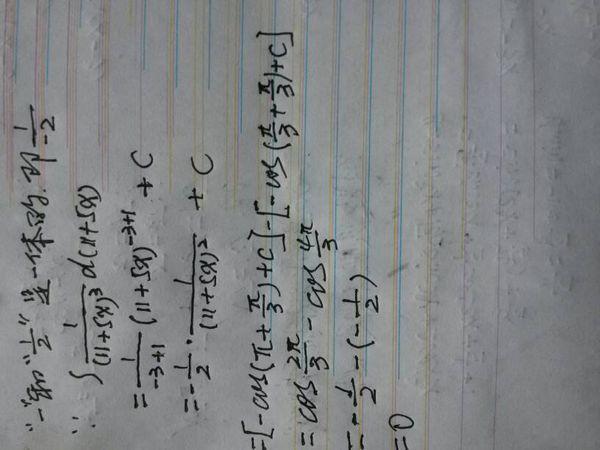 "-"和"1/2"是一体的.即 1/-2
∵ ∫ 1/(11+5x)³ d(11+5x)
= 1/-3+1 (11+5x)⁻³⁺¹ + C
= -1/2 · 1/(11+5x)² + C
=[-cos(π+π/3)+C]-[-cos(π/3+π/3)+C]
= cos 2π/3 - cos 4π/3
= -1/2 - (-1/2)
=0